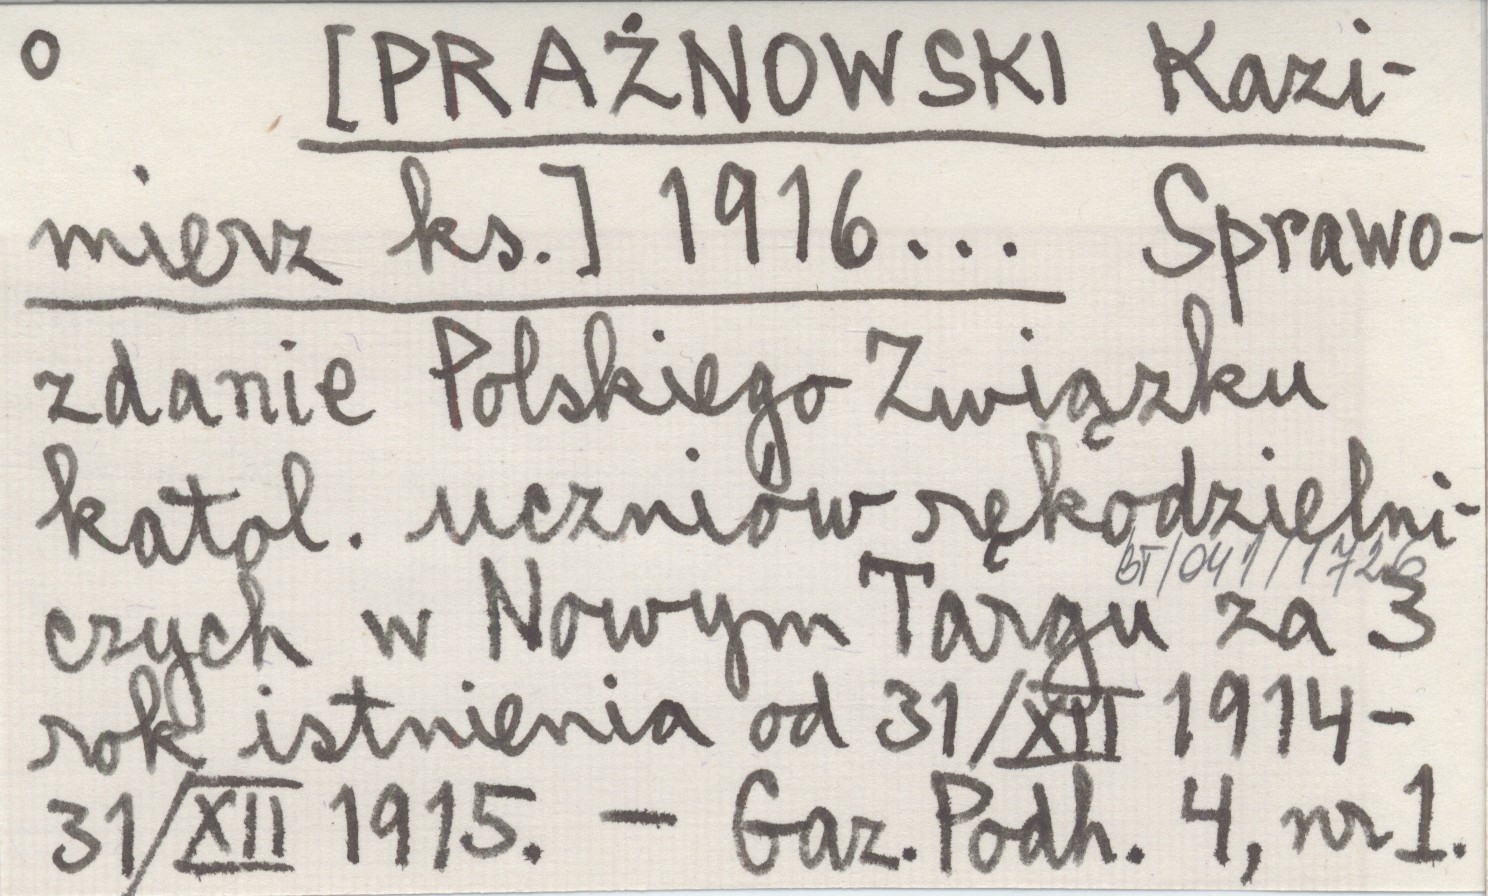 o [PRAŻNOWSKI Kazi-
mierz ks.] 1916... Sprawo-
zdanie Polskiego Związku
katol. uczniów rękodzielni-
BT/041/1726
czych w Nowym Targu za 3
rok istnienia od 31/XII 1914-
31/XII 1915. — Gaz. Podh. 4, nr 1.